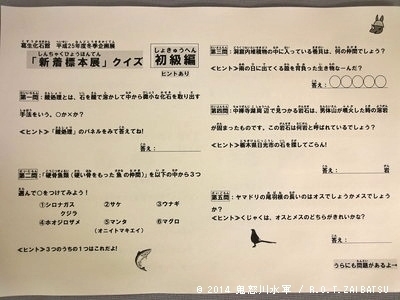 葛生化石館 平成25年度冬季企画展
しんちゃくひょうほんてん
「新着標本展」クイズ
しょきゅうへん
初級編
ヒントあり
第一問：酸処理とは、石を酸で溶かして中から微小な化石を取り出す
手法をいう。○か×か？
≪ヒント≫「酸処理」のパネルをみて答えてね！
答え：
第二問：「硬骨魚類（硬い骨をもった魚の仲間）」を以下の中から３つ
選んで○をつけてみよう！
①シロナガス
クジラ
②サケ
③ウナギ
④ホオジロザメ
⑤マンタ
（オニイトマキエイ）
⑥マグロ
≪ヒント≫３つのうちの１つはこれだよ！
第三問：洞窟内堆積物の中に入っている巻貝は、何の仲間でしょう？
≪ヒント≫雨の日に出てくる殻を背負った生き物な～んだ？
答え：○○○○○
第四問：中禅寺湖周辺で見つかる岩石は、男体山が噴火した時の溶岩
が固まったものです。この岩石は何岩と呼ばれているでしょう？
≪ヒント≫栃木県日光市の石を探してごらん！
答え： 岩
第五問：ヤマドリの尾羽根の長いのはオスでしょうかメスでしょう
か？
≪ヒント≫くじゃくは、オスとメスのどちらがきれいかな？
答え：
うらにも問題があるよ→
© 2014 鬼怒川水軍 / R.O.T.ZAIBATSU